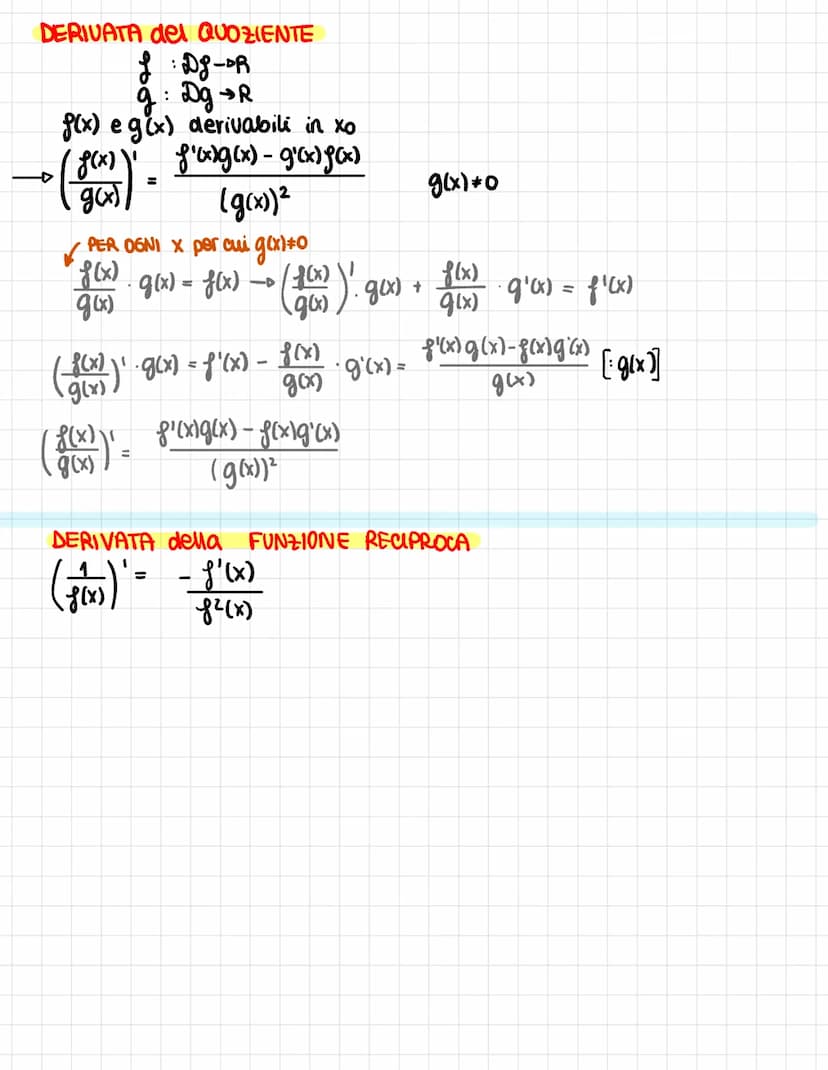 DERIVATA del QUOZIENTE
f : Df→R
g : Dg→R
f(x) e g(x) derivabili in x0
→ (f(x)/g(x))' = (f'(x)g(x) - g'(x)f(x))/(g(x))² g(x)≠0
PER OGNI x per cui g(x)≠0
f(x)/g(x) · g(x) = f(x) → (f(x)/g(x))' · g(x) + f(x)/g(x) · g'(x) = f'(x)
(f(x)/g(x))' · g(x) = f'(x) - f(x)/g(x) · g'(x) = (f'(x)g(x)-f(x)g'(x))/g(x) [: g(x)]
(f(x)/g(x))' = (f'(x)g(x) - f(x)g'(x))/(g(x))²
DERIVATA della FUNZIONE RECIPROCA
(1/f(x))' = - f'(x)/f²(x)